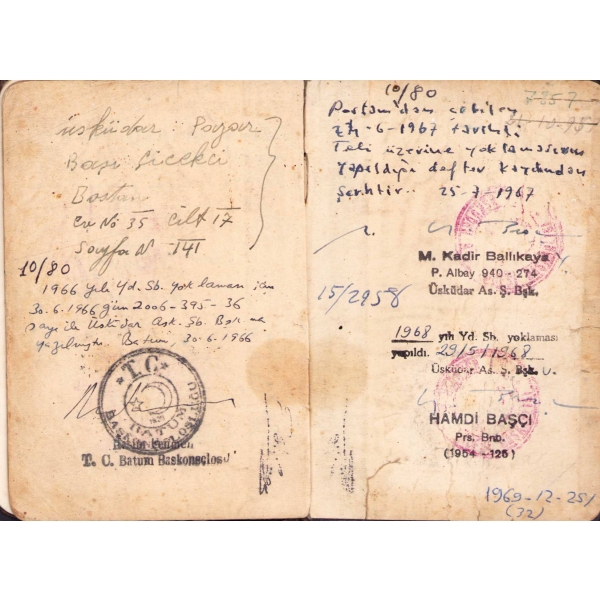 Üsküdar Pazar
Başı Çicekci
Bostan
Ev No 35 Cilt 17
Sayfa N. 141
10/80
1966 yılı Yd. Sb. yoklaması için
30.6.1966 gün 2006-395-36
sayı ile Üsküdar Ask. Şb. Bşk.na
yazılmıştır. Batum, 30.6.1966
T.C.
BATUM
T. C. Batum Baskonsolosu
10/80
7857
-6-1967 tarihli
Teli üzerine yoklamasının
yapıldığı defter kaydından
25-7-1967
M. Kadir Ballıkaya
P. Albay 940 - 274
Üsküdar As. Ş. Bşk.
15/2958
1968 yılı Yd. Sb. yoklaması
yapıldı. 29/5/1968
Üsküdar As. Ş. Bşk.
HAMDİ BAŞÇI
Prs. Bnb.
(1954 - 125)
1969-12-25/
(32)